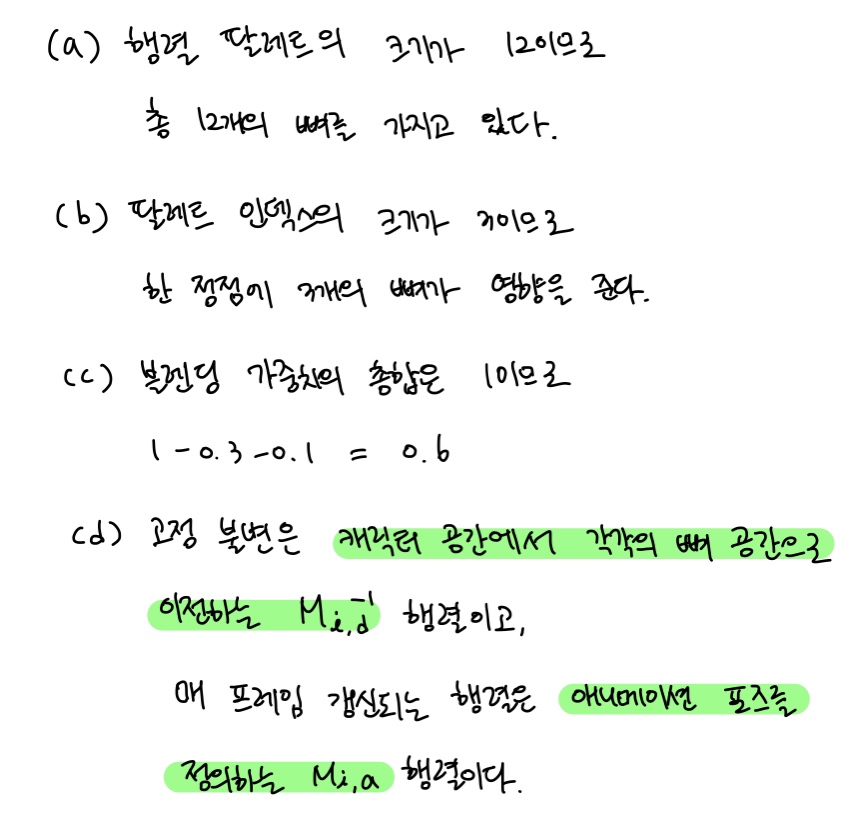 (a) 행렬 팔레트의 크기가 12이므로
총 12개의 뼈를 가지고 있다.
(b) 팔레트 인덱스의 크기가 3이므로
한 정점에 3개의 뼈가 영향을 준다.
(c) 블렌딩 가중치의 총합은 1이므로
1 - 0.3 - 0.1 = 0.6
(d) 고정 불변은 캐릭터 공간에서 각각의 뼈 공간으로
이전하는 M_{i,d}^{-1} 행렬이고,
매 프레임 갱신되는 행렬은 애니메이션 포즈를
정의하는 M_{i,a} 행렬이다.